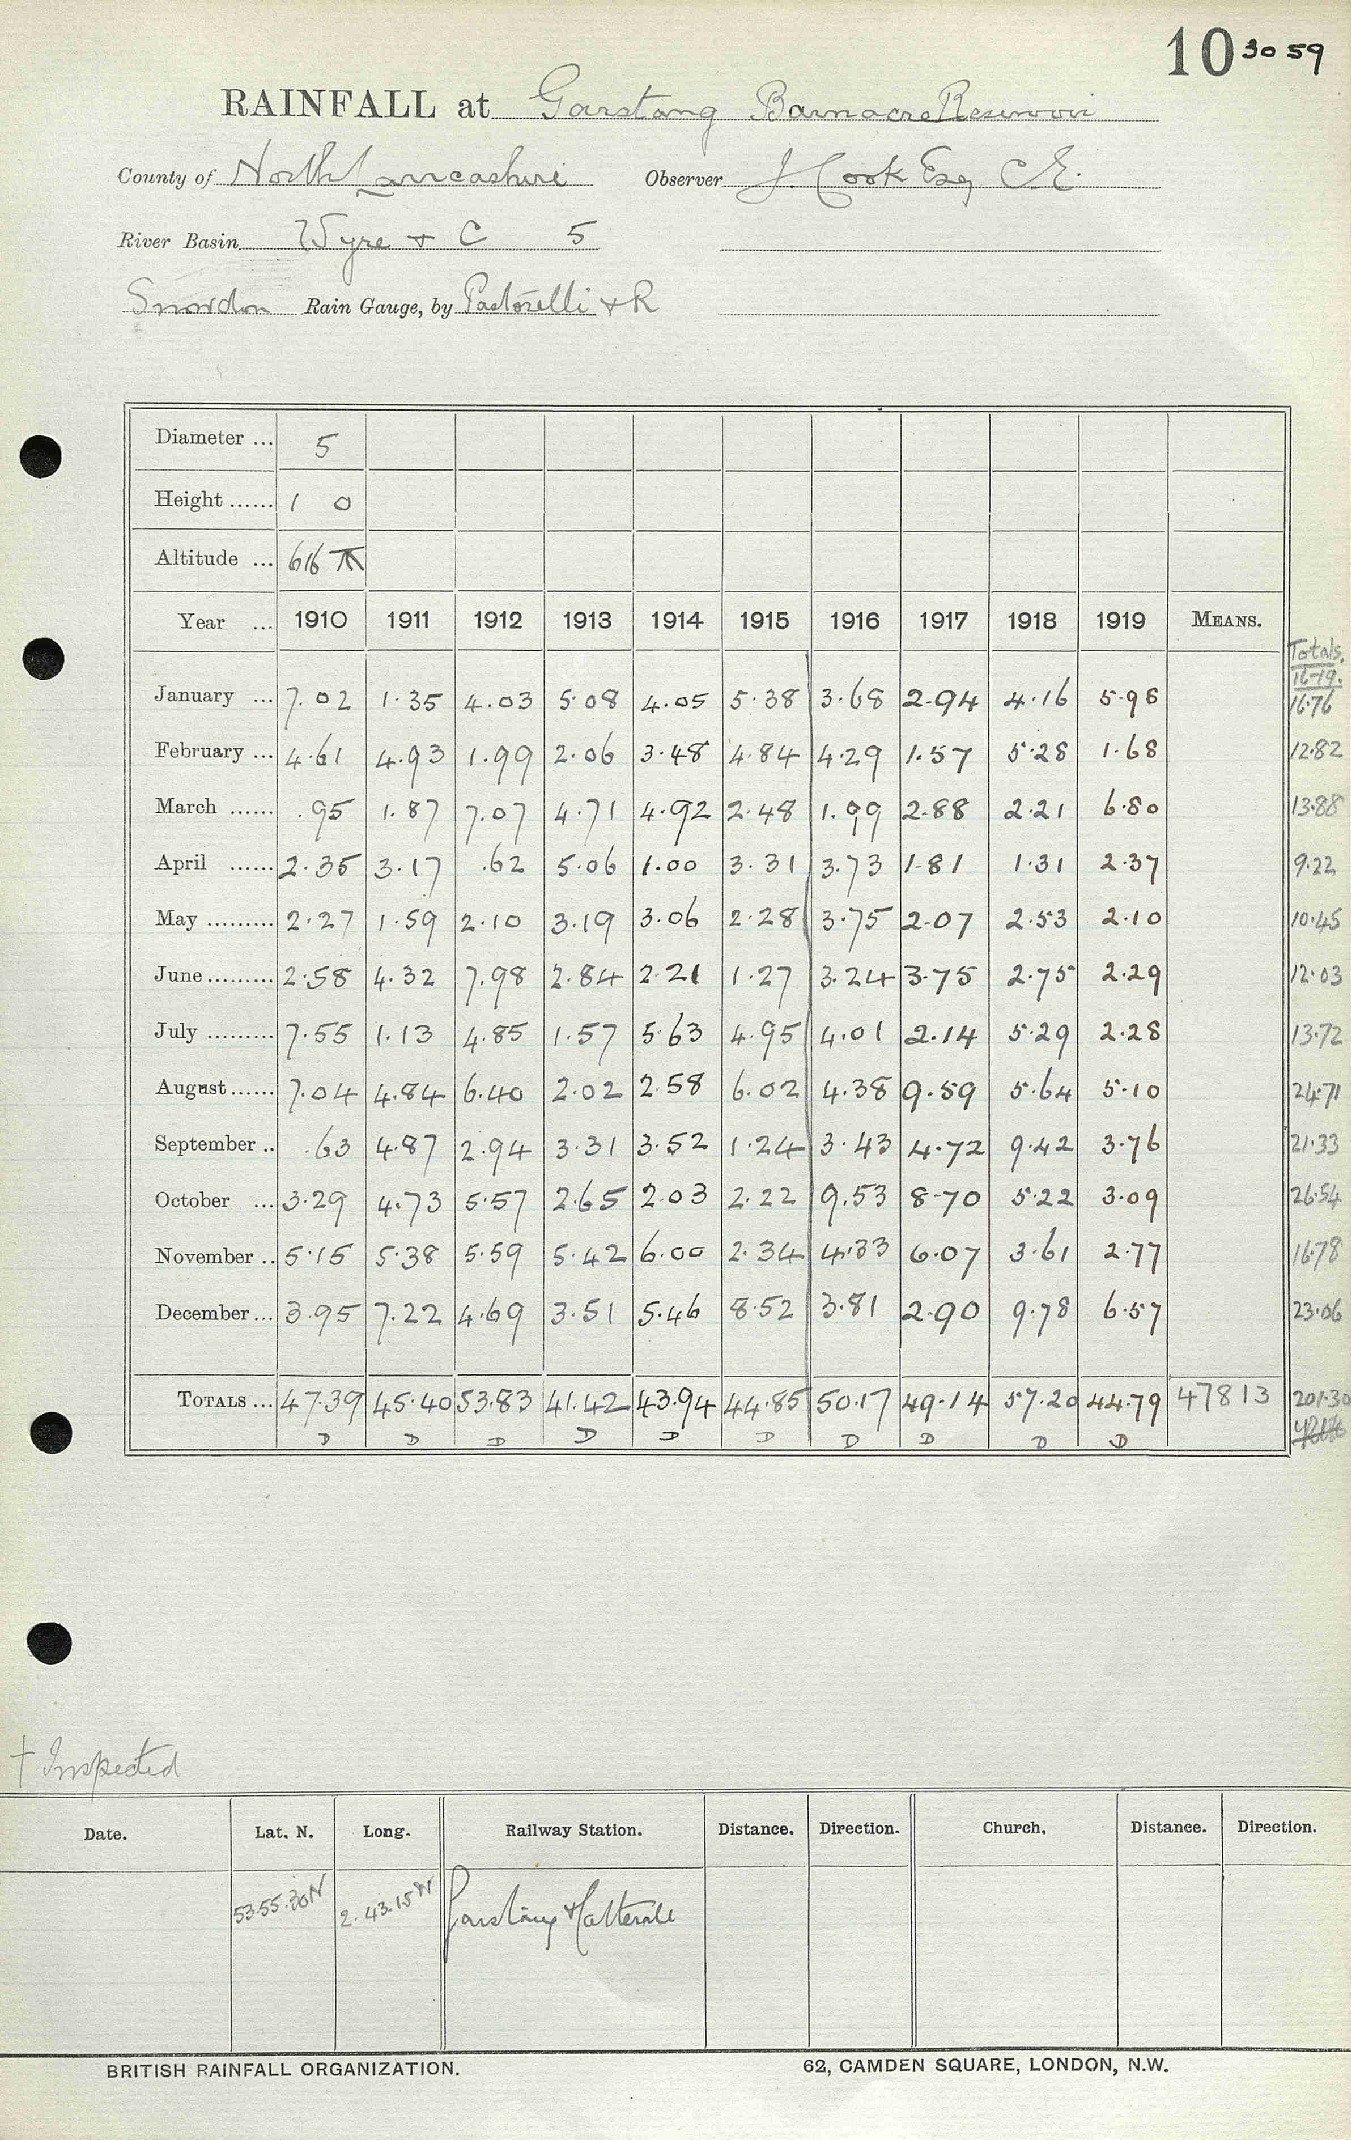 10 30 59
RAINFALL at Garstang Barnacre Reservoir
County of North Lancashire Observer J. Cook Esq C.E.
River Basin Wyre + C 5
Snowdon Rain Gauge, by Pastorelli + R
Diameter ... 5
Height ...... 1 0
Altitude ... 616
Year ... 1910 1911 1912 1913 1914 1915 1916 1917 1918 1919 MEANS.
Totals.
16-19.
January ... 7.02 1.35 4.03 5.08 4.05 5.38 3.68 2.94 4.16 5.98 16.76
February ... 4.61 4.93 1.99 2.06 3.48 4.84 4.29 1.57 5.28 1.68 12.82
March ...... .95 1.87 7.07 4.71 4.92 2.48 1.99 2.88 2.21 6.80 13.88
April ...... 2.35 3.17 .62 5.06 1.00 3.31 3.73 1.81 1.31 2.37 9.22
May ......... 2.27 1.59 2.10 3.19 3.06 2.28 3.75 2.07 2.53 2.10 10.45
June ......... 2.58 4.32 7.98 2.84 2.21 1.27 3.24 3.75 2.75 2.29 12.03
July ......... 7.55 1.13 4.85 1.57 5.63 4.95 4.01 2.14 5.29 2.28 13.72
August ...... 7.04 4.84 6.40 2.02 2.58 6.02 4.38 9.59 5.64 5.10 24.71
September .. .63 4.87 2.94 3.31 3.52 1.24 3.43 4.72 9.42 3.76 21.33
October ... 3.29 4.73 5.57 2.65 2.03 2.22 9.53 8.70 5.22 3.09 26.54
November .. 5.15 5.38 5.59 5.42 6.00 2.34 4.33 6.07 3.61 2.77 16.78
December ... 3.95 7.22 4.69 3.51 5.46 8.52 3.81 2.90 9.78 6.57 23.06
TOTALS ... 47.39 45.40 53.83 41.42 43.94 44.85 50.17 49.14 57.20 44.79 47813 201.30
D D D D D D D D D D
† Inspected
Date. Lat. N. Long. Railway Station. Distance. Direction. Church. Distance. Direction.
53.55.30N 2.43.15W Garstang & Catterall
BRITISH RAINFALL ORGANIZATION. 62, CAMDEN SQUARE, LONDON, N.W.